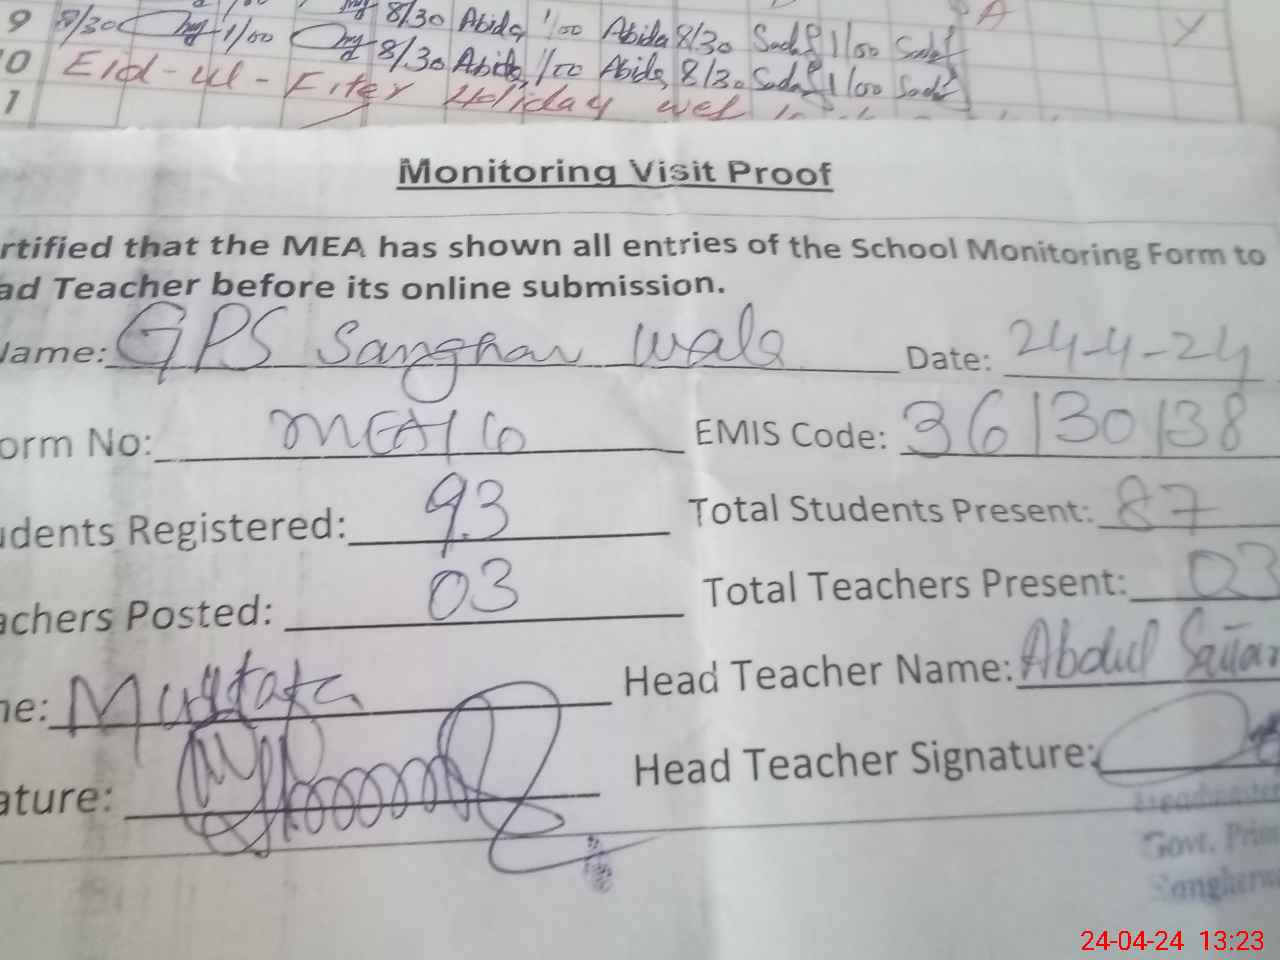 9 8/30 1/00 8/30 Abida 1/00 Abida 8/30 Sadaf 1/00 Sadaf A Y
0 8/30 Abida 1/00 Abida 8/30 Sadaf 1/00 Sadaf
1 Eid-ul-Fiter Holiday wef
Monitoring Visit Proof
rtified that the MEA has shown all entries of the School Monitoring Form to
ad Teacher before its online submission.
Name: GPS Sanghar wala Date: 24-4-24
orm No: MEA16 EMIS Code: 36130138
udents Registered: 93 Total Students Present: 87
achers Posted: 03 Total Teachers Present: 03
me: Mustafa Head Teacher Name: Abdul Sattar
ature: Head Teacher Signature:
Headmaster
Govt. Prim
Sangherw
24-04-24 13:23